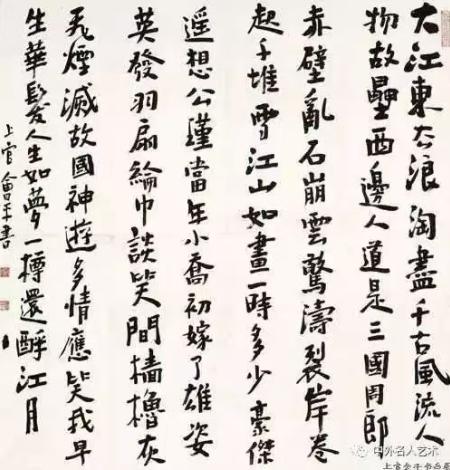 大江東去浪淘盡千古風流人
物故壘西邊人道是三國周郎
赤壁亂石崩雲驚濤裂岸卷
起千堆雪江山如畫一時多少豪傑
遥想公瑾當年小喬初嫁了雄姿
英發羽扇綸巾談笑間檣櫓灰
飛煙滅故國神遊多情應笑我早
生華髮人生如夢一樽還酹江月
上官書
中外名人艺术